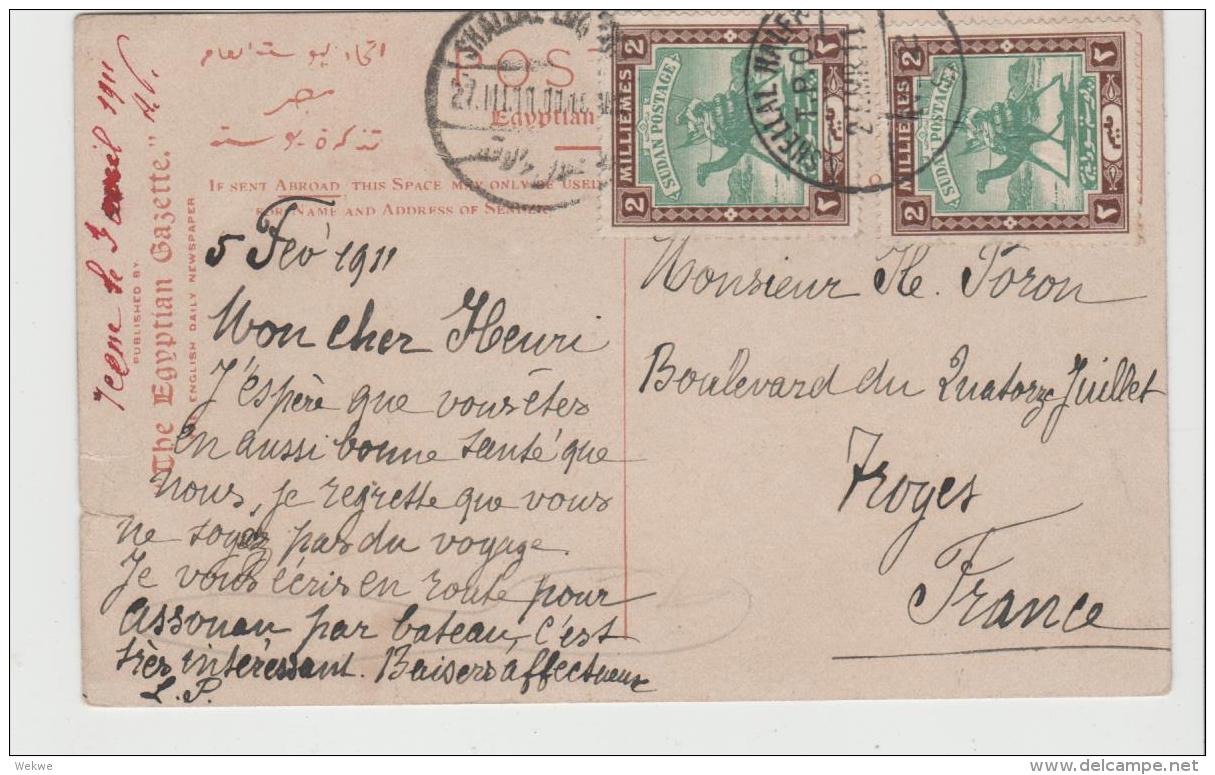 اتحاد بوستة العام
مصر
تذكرة بوستة
POST
Egyptian
IF SENT ABROAD THIS SPACE MAY ONLY BE USED
FOR NAME AND ADDRESS OF SENDER
PUBLISHED BY
"The Egyptian Gazette."
ENGLISH DAILY NEWSPAPER
1911
SHALLAL
27.III.11
2 MILLIEMES 2
SUDAN POSTAGE
٢ ٢
SHELLAL HALFA
T.P.O.
2 MILLIEMES 2
SUDAN POSTAGE
٢ ٢
5 Fev 1911
Mon cher Henri
J'espère que vous êtes
en aussi bonne santé que
nous, je regrette que vous
ne soyez pas du voyage.
Je vous écris en route pour
Assouan par bateau, c'est
très intéressant. Baisers affectueux
L. P.
Monsieur He. Poron
Boulevard du Quatorze Juillet
Troyes
France
Wekwe
www.delcampe.net